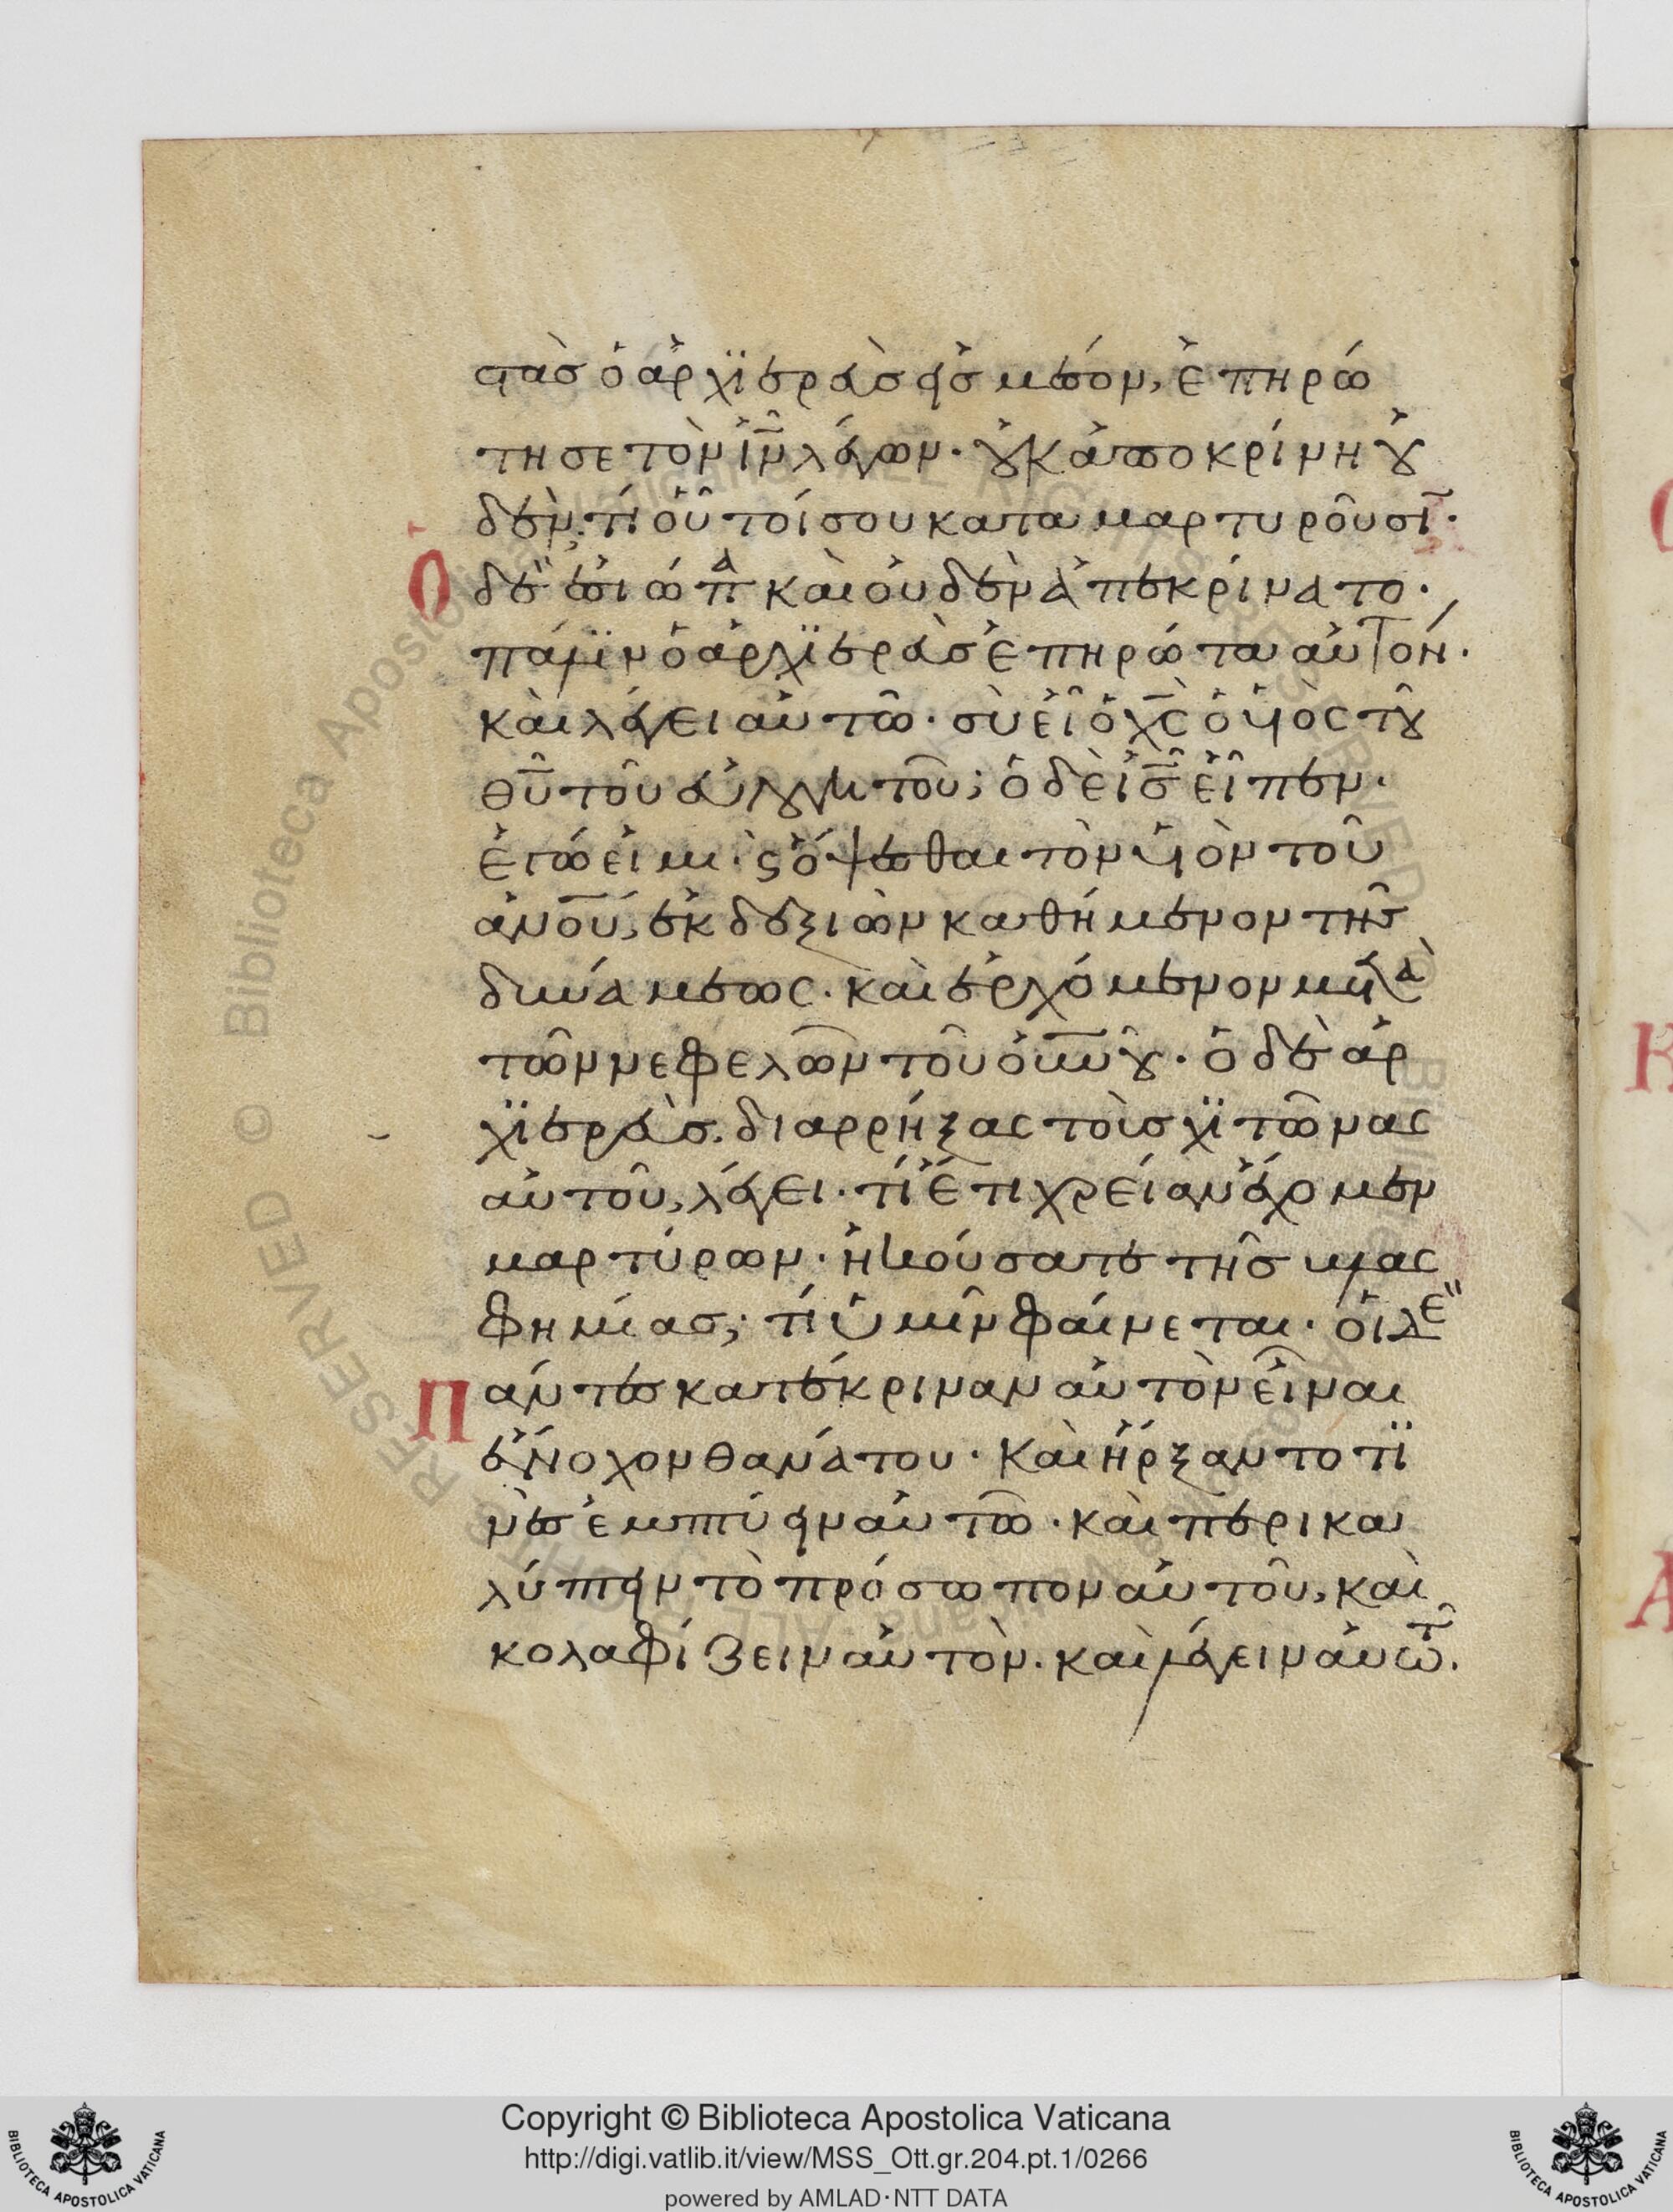 στὰσ ὁ ἀρχϊερεὺσ εἰσ μέσον, ἐπηρώ
τησε τὸν ἰν̅ λέγων· οὐκ ἀποκρίνη οὐ
δὲν· τί οὗτοί σου καταμαρτυροῦσϊ·
Ὁ δὲ ἐσιώπα καὶ οὐδὲν ἀπεκρίνατο·
πάλϊν ὁ ἀρχϊερεὺσ ἐπηρώτα αὐτόν·
καὶ λέγει αὐτῶ· σὺ εἶ ὁ χ̅ς ὁ υἱὸς τοῦ
θυ̅ τοῦ εὐλογητοῦ; ὁ δὲ ἰσ̅ εἶπεν·
ἐγώ εἰμι· ϛ ὄψεσθαι τὸν υἱὸν τοῦ
ἀνο̅υ, ἐκ δεξιῶν καθήμενον τῆσ
δυνάμεως· καὶ ἐρχόμενον μετὰ
τῶν νεφελῶν τοῦ οὐν̅οῦ· ὁ δὲ ἀρ
χϊερεὺσ. διαρρήξας τοὺσ χϊτῶνας
αὐτοῦ, λέγει· τί ἔτι χρείαν ἔχομεν
μαρτύρων· ἠκούσατε τῆσ βλας
φημίασ; τί ὑμῖν φαίνεται· οἱ δὲ
Πάντεσ κατέκριναν αὐτὸν εἶναι
ἔνοχον θανάτου· Καὶ ἤρξαντο τϊ
νὲσ ἐμπτύειν αὐτῶ· καὶ περικα
λύπτειν τὸ πρόσωπον αὐτοῦ, καὶ
κολαφίζειν αὐτὸν. καὶ λέγειν αὐτῶ.
© Biblioteca Apostolica Vaticana · ALL RIGHTS RESERVED
Copyright © Biblioteca Apostolica Vaticana
http://digi.vatlib.it/view/MSS_Ott.gr.204.pt.1/0266
powered by AMLAD·NTT DATA
BIBLIOTECA APOSTOLICA VATICANA
BIBLIOTECA APOSTOLICA VATICANA